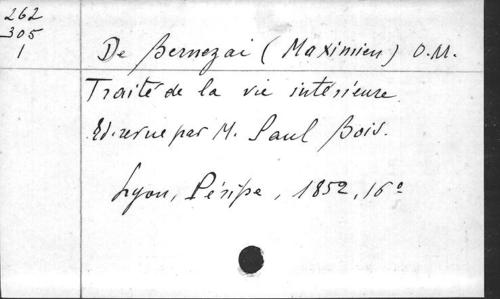 262
305
1
De Bernezai (Maximien) O.M.
Traité de la vie intérieure
Ed. revue par M. Paul Bois.
Lyon, Périsse, 1852, 16°